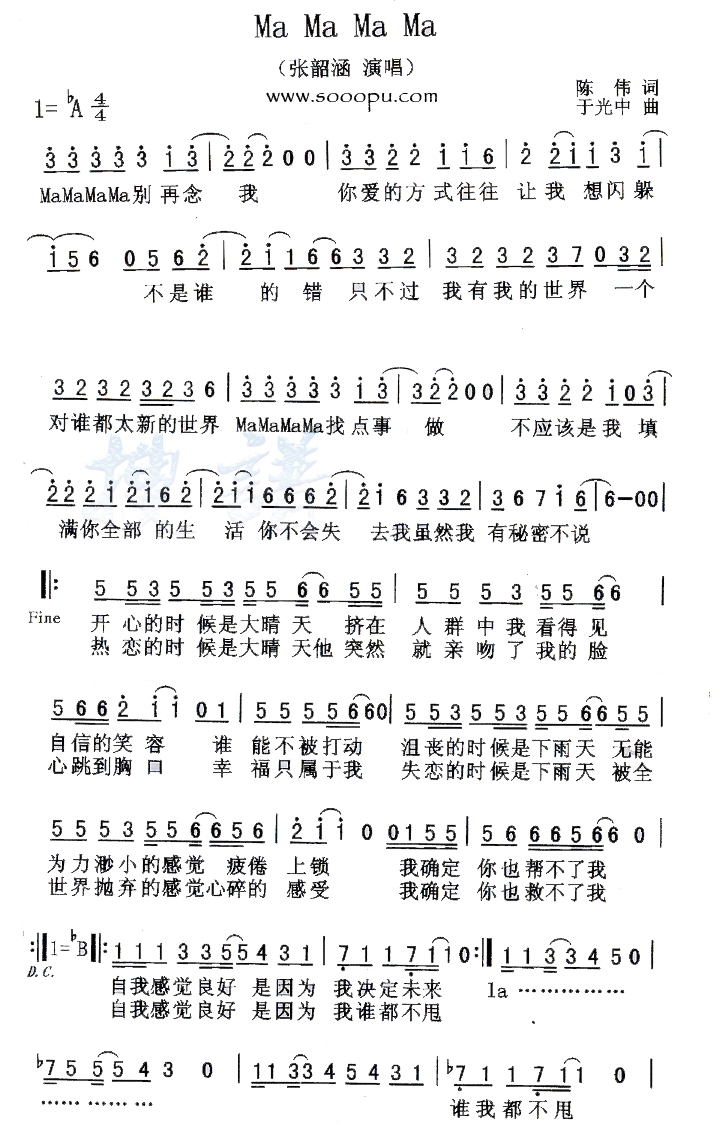 Ma Ma Ma Ma
（张韶涵 演唱）
www.sooopu.com
陈 伟 词
1=♭A 4/4
于光中 曲
3 3 3 3 3 i 3 | 2 2 2 0 0 | 3 3 2 2 i i 6 | 2 2 i i 3 i |
MaMaMaMa别再念 我 你爱的方式往往 让我 想闪躲
i 5 6 0 5 6 2 | 2 i 1 6 6 3 3 2 | 3 2 3 2 3 7 0 3 2 |
不是谁 的 错 只不过 我有我的世界 一个
3 2 3 2 3 2 3 6 | 3 3 3 3 3 i 3 | 3 2 2 0 0 | 3 3 2 2 i 0 3 |
对谁都太新的世界 MaMaMaMa找点事 做 不应该是我 填
2 2 2 i 2 i 6 2 | 2 i i 6 6 6 2 | 2 i 6 3 3 2 | 3 6 7 i 6 | 6-00 |
满你全部 的生 活 你不会失 去我虽然我 有秘密不说
‖: 5 5 3 5 5 3 5 5 6 6 5 5 | 5 5 5 3 5 5 6 6 |
Fine 开心的时 候是大晴天 挤在 人群中我看得见
热恋的时 候是大晴天他突然 就亲吻了我的脸
5 6 6 2 i i 0 1 | 5 5 5 5 5 5 6 6 0 | 5 5 3 5 5 3 5 5 6 6 5 5 |
自信的笑 容 谁 能不被打动 沮丧的时候是下雨天 无能
心跳到胸口 幸 福只属于我 失恋的时候是下雨天 被全
5 5 5 3 5 5 6 6 5 6 | 2 i i 0 0 1 5 5 | 5 6 6 6 5 6 6 0 |
为力渺小的感觉 疲倦 上锁 我确定 你也帮不了我
世界抛弃的感觉心碎的 感受 我确定 你也救不了我
:‖ 1=♭B ‖: 1 1 1 3 3 5 5 4 3 1 | 7 1 1 7 1 1 0 :‖ 1 1 3 3 4 5 0 |
D.C. 自我感觉良好 是因为 我决定未来 la ……………
自我感觉良好 是因为 我谁都不甩
♭7 5 5 5 4 3 0 | 1 1 3 3 4 5 4 3 1 | ♭7 1 1 7 1 1 0 |
…… …… … 谁我都不甩